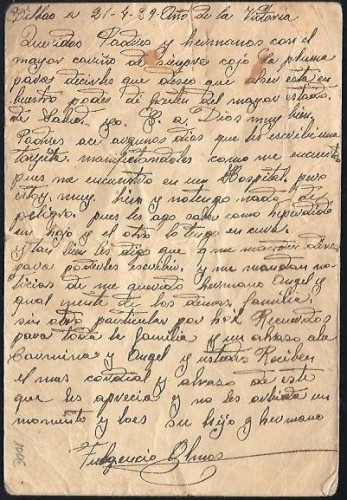 Bilbao a 21-4-39-Año de la Vitoria
Queridos Padres y hermanos con el
mayor cariño de siempre cojo la pluma
para decirles que deseo que al ser esta en
buestro poder os hallen del mayor estado
de salud yo. G a Dios muy bien.
Padres ace algunos dias que les escribi una
tarjeta manifestandoles como me encuentro
pues me encuentro en un Hospital. pero
estoy. muy. bien y no tengo nada de
peligro. pues les ago saber como he perdido
un hojo y el otro lo tengo en cura.
y tan bien les digo que me manden
para poderles escribir. y me mandan no-
ticias de mi querido hermano Angel y
ygual mente de los demas familia.
sin otro particular por hoi Recuerdos
para toda la familia y un abraso a la
Carmina y Angel y ustedes Reciben
el mas cordial y abraso de este
que les aprecia y no les olbida un
momento y loes su hijo y hermano
Fulgencio Olmos